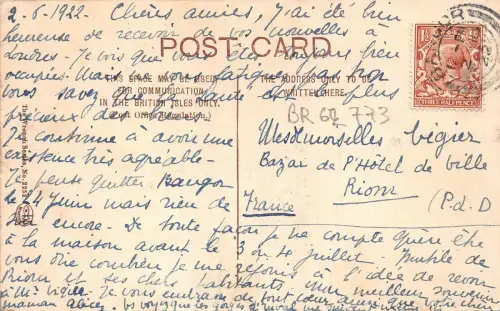 2-6-1922 Chères amies, j'ai été bien
heureuse de recevoir de vos nouvelles à
Londres. Je vois que vous êtes toujours bien
occupées. Mais ne vous fatiguez pas trop
vous savez la santé est le plus
précieux de
Je continue à avoir une
existence très agréable.
Je pense quitter Bangor
le 14 juin mais rien de
encore. De toute façon je ne compte guère être
à la maison avant le 3 ou 4 juillet. Inutile de
vous dire combien je me réjouis à l'idée de revoir
Riom et ses chers habitants. Mon meilleur souvenir
à Mr Vigier. Je vous embrasse de tout cœur ainsi que votre chère
maman
POST CARD
THIS SPACE MAY BE USED
FOR COMMUNICATION
IN THE BRITISH ISLES ONLY.
(Post Office Regulation.)
THE ADDRESS ONLY TO BE
WRITTEN HERE.
BR 67 773
Mesdemoiselles Vigier
Bazar de l'Hôtel de Ville
Riom
(P.d.D
France
THREE HALF PENCE